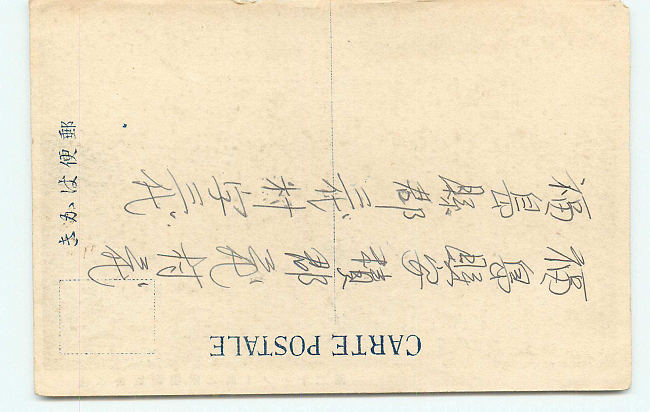 CARTE POSTALE
郵便はかき
福島縣安積郡三代村三代
福島縣郡三代村字三代